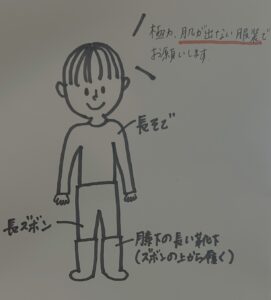 極力、肌が出ない服装で
お願いします
長そで
長ズボン
膝下の長い靴下
(ズボンの上から履く)